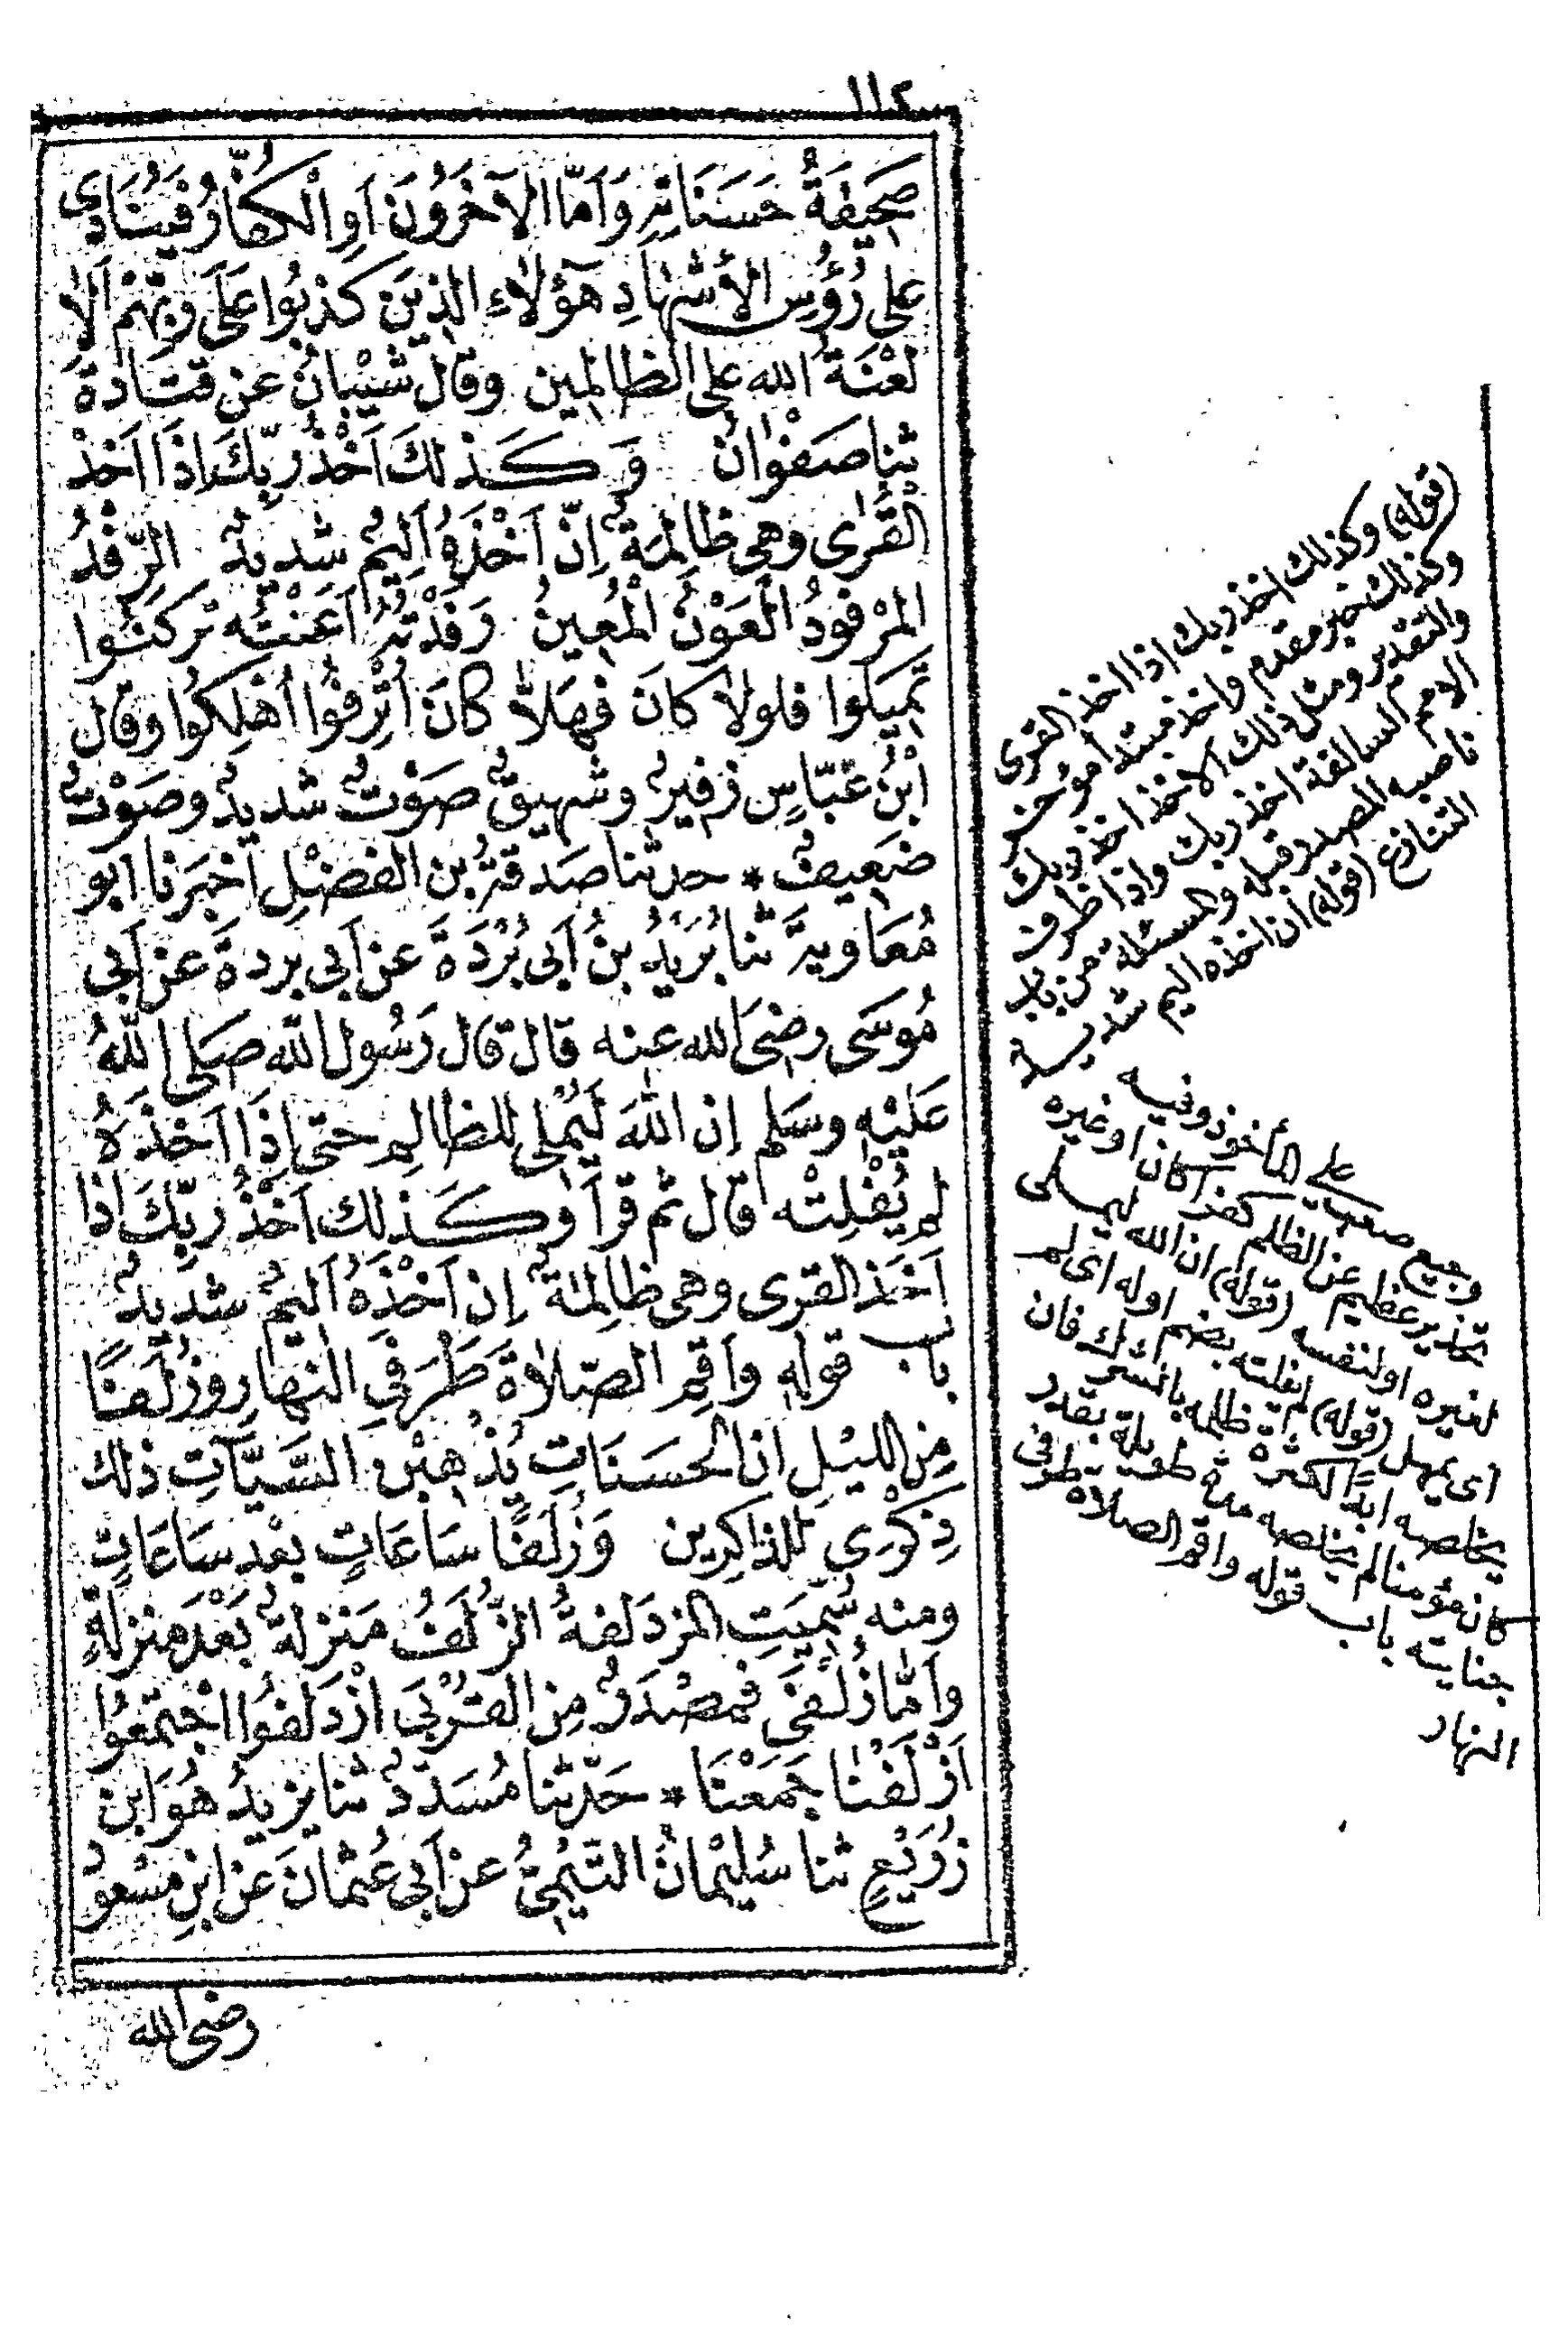 ١١٤
صَحِيفَةُ حَسَنَاتِهِ وَاَمَّا الْآخَرُونَ اَوِ الْكُفَّارُ فَيُنَادِى
على رُؤُسِ الْأشْهَادِ هَؤُلَاءِ الذِينَ كَذَبُوا عَلَى رَبِّهِمْ اَلَا
لَعْنَةُ الله على الظالمِين وقال شَيْبَانُ عن قتادة
ثنا صَفْوَانُ وَكَذلكَ اَخْذُ رَبِّكَ اذَا اَخَذَ
القُرَى وهى ظالمةٌ اِنّ اَخْذَهُ اَلِيمٌ شديدٌ الرِّفْدُ
المرْفودُ الْعَوْنُ الْمُعِينُ رَفَدْتُهُ اَعَنْتُه تَرْكَنُوا
تَمِيلُوا فلولا كانَ فهَلّا كَانَ اُتْرِفُوا اُهْلِكُوا وقال
ابْنُ عَبّاسٍ زفيرٌ وشهيقٌ صَوْتٌ شديدٌ وصَوْتٌ
ضَعِيفٌ * حدثنا صَدقَةُ بن الفضْلِ اخبَرَنا ابو
مُعَاويةَ ثنا بُرَيْدُ بنُ اَبى بُرْدَةَ عن اَبى بردةَ عن اَبى
مُوسَى رضىَ الله عنه قال قال رَسُول الله صَلى اللهُ
عَلَيْهِ وسَلم إن اللهَ لَيُمْلى للظالم حتى إذَا اَخذَهُ
لم يُفْلِتْه قال ثم قرَاَ وكَذلك اَخْذُ رَبِّكَ اذا
اَخَذ القرى وهى ظالِمةٌ إن اَخْذَهُ اَليمٌ شديدٌ
باب قولِه وَاَقِمِ الصّلاةَ طَرَفَىِ النهارِ وزُلَفًا
مِن الليْل ان الحسَنَاتِ يُذْهِبْن السَّيِّآتِ ذلك
ذِكْرَى للذاكِرين وَزُلَفًا سَاعَاتٍ بعْد سَاعَاتٍ
ومنه سُمِّيَتِ المزدَلفةُ الزُّلَفُ مَنزلةٌ بَعْدَ منزلةٍ
واَمّا زُلْفَى فمصْدَرٌ مِن القُرْبَى ازْدَلفُوا اجْتمَعُوا
اَزْلَفْنَا جَمَعْنَا * حَدّثنا مُسَدَّدٌ ثنا يزيدُ هُوَ ابن
زُرَيْعٍ ثنا سُليْمانُ التّيْمِىُّ عن اَبى عُثمانَ عن ابنِ مسْعودٍ
رضى الله
(قوله) وكذلك اخذ ربك اذا اخذ القرى
وكذلك خبر مقدم واخذ مبتدأ مؤخر
والتقدير ومثل ذلك الاخذ اخذ ربك
الامم السالفة اخذ ربك واذا ظرف
ناصبه المصدر قبله والمسئلة من باب
التنازع (قوله) ان اخذه اليم شديد
على المأخوذ وفيه
وجيع صعب كفرا كان او غيره
تحذير عظيم عن الظلم
لغيره او لنفسه (قوله) ان الله ليملى
اى يمهل (قوله) لم يفلته بضم اوله اى لم
يخلصه ابدا لكثرة ظلمه بالشرك فان
كان مؤمنا لم يخلصه مدة طويلة بقدر
جنايته باب قوله واقم الصلاة طرفى
النهار